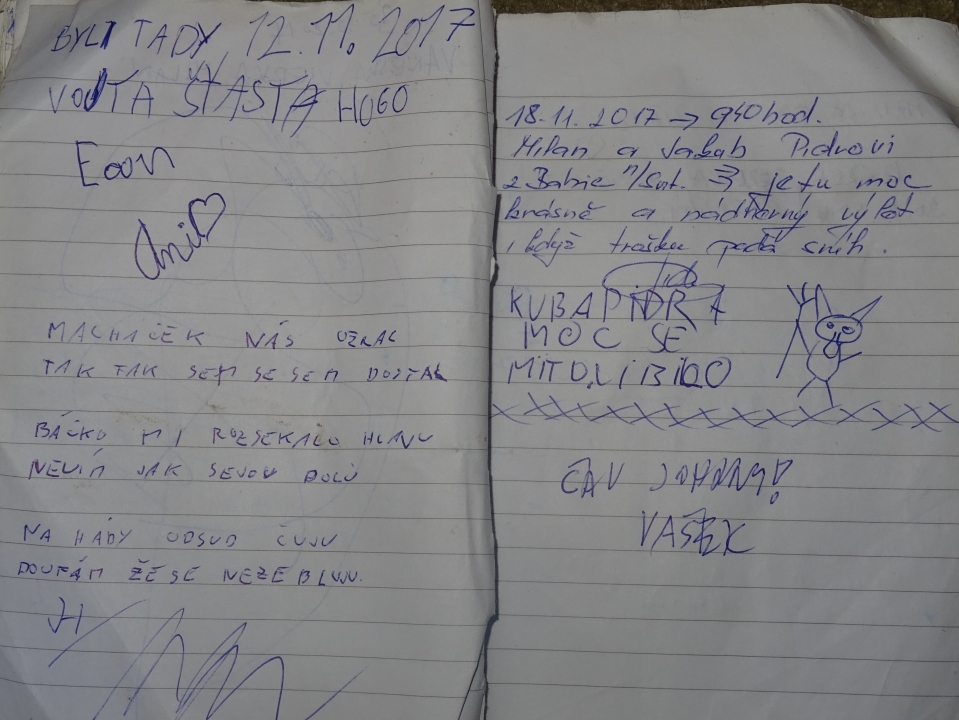 BYLI TADY 12.11.2017
VOJTA ŠŤASTA HUGO
Eoon
MACHÁČEK NÁS OŽRAL
TAK TAK SEM SE SEM DOSTAL
BÁČKO MI ROZSEKALO HLAVU
NEVÍM JAK SEJOU DOLŮ
NA HÁDY ODSUD ČUJU
DOUFÁM ŽE SE NEZEBLUJU.
18.11.2017 → 940 hod.
Milan a Jakub Pidrovi
z Babic n/Svit. je tu moc
krásně a nádherný výlet
i když trošku padá sníh.
KUBA PIDRA
MOC SE
MI TO LÍBILO
ČAU JOHANY!
VAŠEK